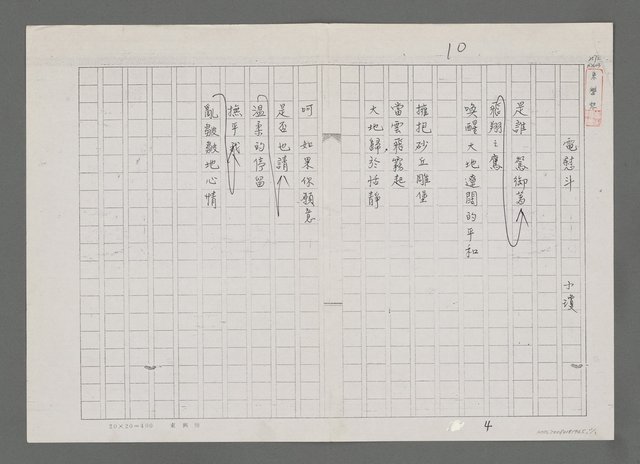 10
電熨斗 小瓊
是誰 駕御著
飛翔之鷹
喚醒大地遼闊的平和
擁抱砂丘雕堡
當雲飛霧起
大地歸於恬靜
呵 如果你願意
是否也請
溫柔的停留
撫平我
亂皺皺地心情
4
20×20=400